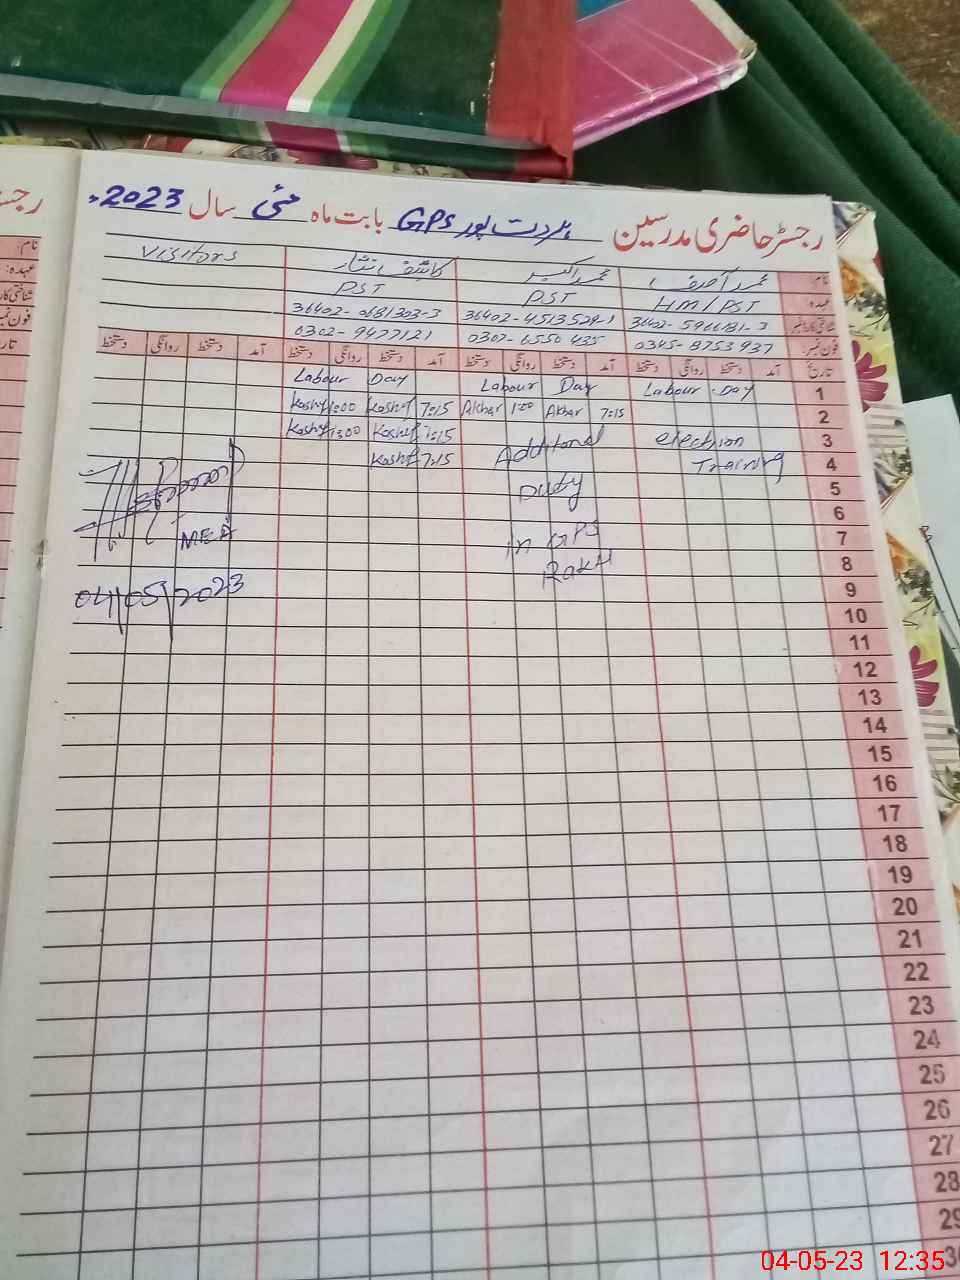 رجسٹر حاضری مدرسین ہردت پور GPS بابت ماہ مئی سال 2023ء
نام محمد آصف محمد اکبر کاشف نثار Visitors
عہدہ HM/PST PST PST
شناختی کارڈ نمبر 36402-5966181-3 36402-4513529-1 36402-0681303-3
فون نمبر 0345-8753937 0307-6550435 0302-9477121
تاریخ آمد دستخط روانگی دستخط آمد دستخط روانگی دستخط آمد دستخط روانگی دستخط آمد دستخط روانگی دستخط
1 Labour Day Labour Day Labour Day
2 7:15 Akbar 1:00 Akbar 7:15 Kashif 1:00 Kashif
3 election Additonal Kashif 1:00 Kashif
4 Training 7:15 Kashif
5 Duty
6
7 in GPS MEA
8 Rakh
9 04/05/2023
10
11
12
13
14
15
16
17
18
19
20
21
22
23
24
25
26
27
28
29
30
رجسٹر
نام:
عہدہ:
شناختی کار
فون نمبر
تار
04-05-23 12:35